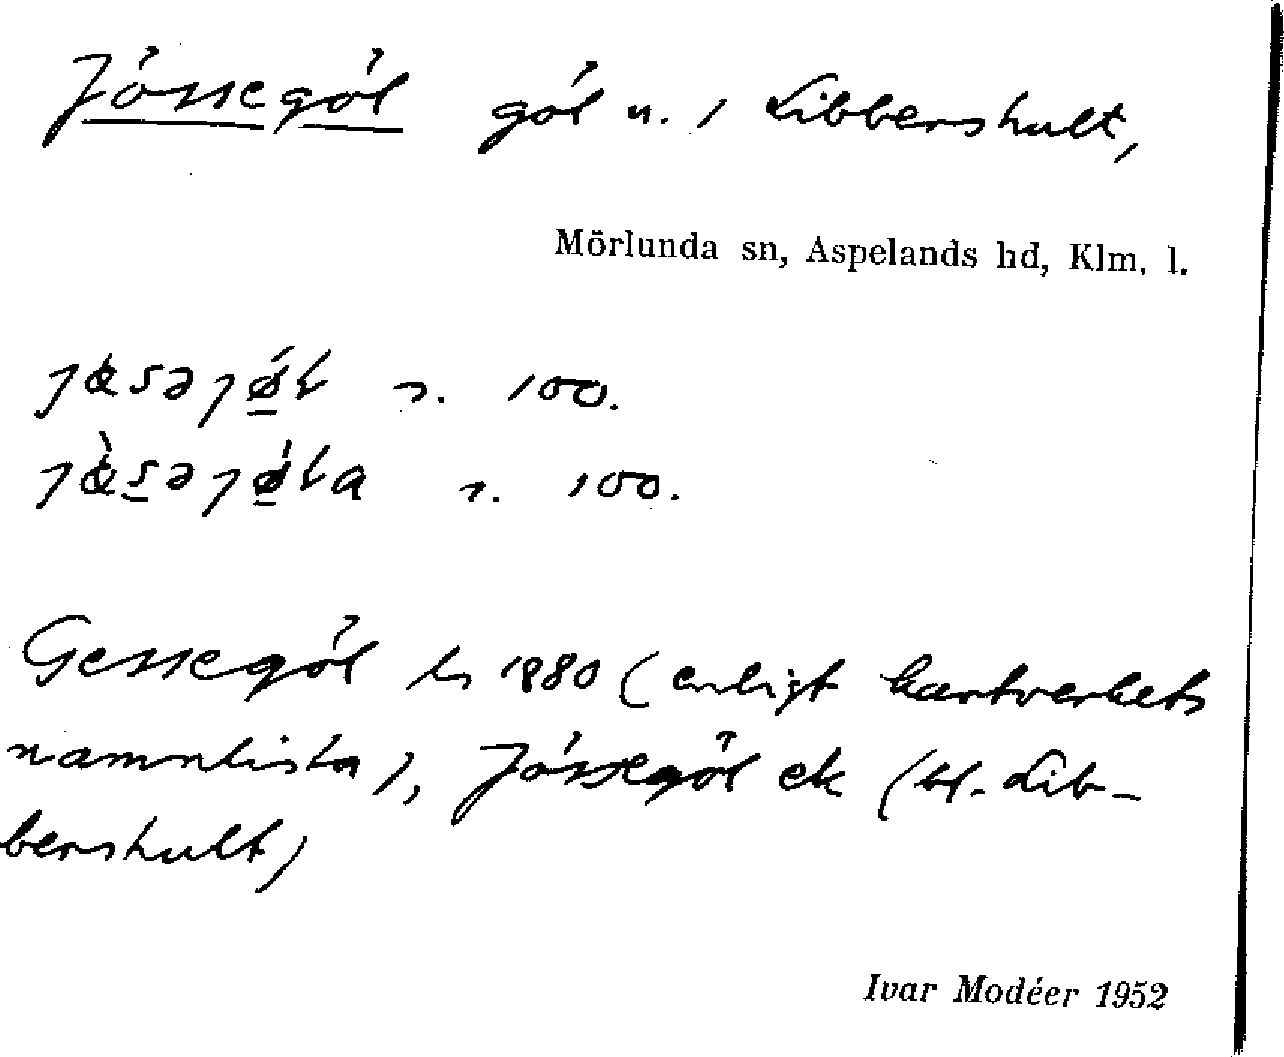 Jössegöl göl n. / Libbershult,
Mörlunda sn, Aspelands hd, Klm. l.
s. 100.
s. 100.
Gessegöl hs 1880 (enligt kartverkets
namnlista), Jössegöl ek (bl. Lib-
bershult)
Ivar Modéer 1952